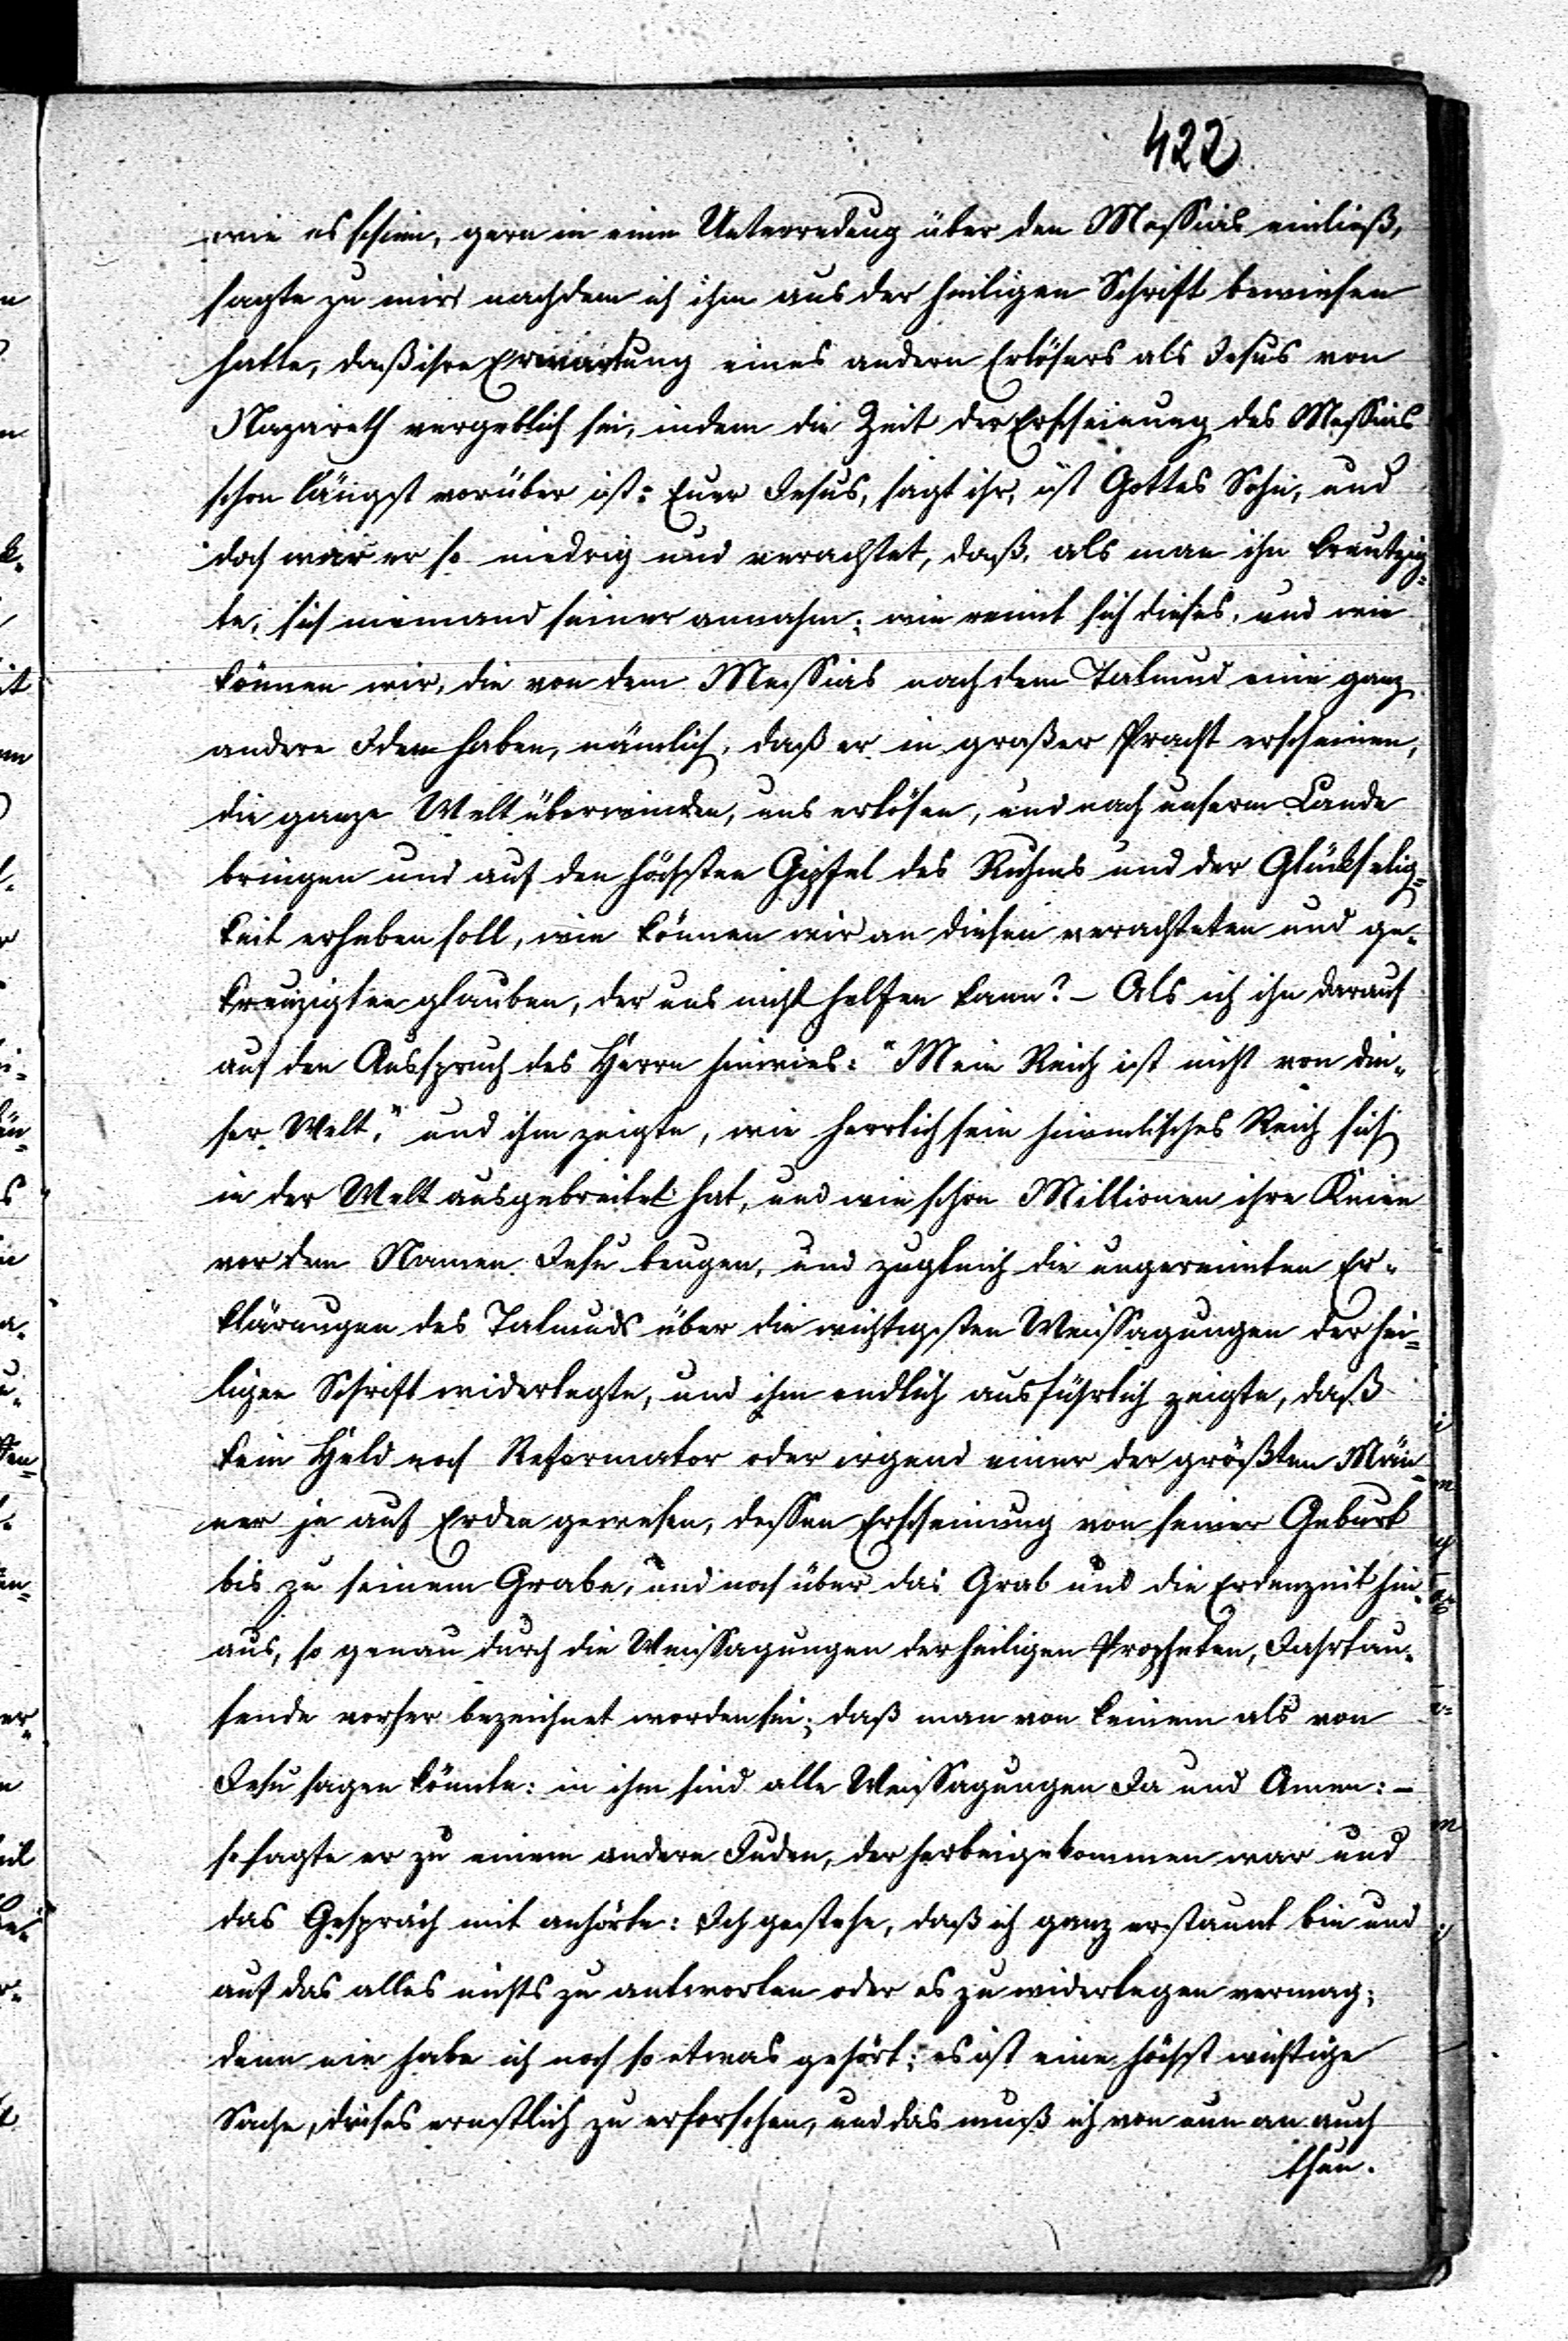 422
wie es schien, gern in eine Unterredung über den Messias einließ,
sagte zu mir, nachdem ich ihm aus der heiligen Schrift bewiesen
hatte, daß ihre Erwartung eines andern Erlösers als Jesus von
Nazareth vergeblich sei, indem die Zeit der Erscheinung des Messias
schon längst vorüber ist: Euer Jesus, sagt ihr, ist Gottes Sohn, und
doch war er so niedrig und verachtet, daß, als man ihn kreutzig=
te, sich niemand seiner annahm; wie reimt sich dieses, und wie
können wir, die von dem Messias nach dem Talmud eine ganz
andere Idee haben, nämlich, daß er in großer Pracht erscheinen,
die ganze Welt überwinden, uns erlösen, und nach unserm Lande
bringen und auf den höchsten Gipfel des Ruhms und der Glückselig=
keit erheben soll, wie können wir an diesen verachteten und ge=
kreuzigten glauben, der uns nicht helfen kann? – Als ich ihn darauf
auf den Ausspruch des Herrn hinwies: "Mein Reich ist nicht von die=
ser Welt," und ihm zeigte, wie herrlich sein himmlisches Reich sich
in der Welt ausgebreitet hat, und wie schon Millionen ihre Kniee
vor dem Namen Jesu beugen, und zugleich die ungereimten Er=
klärungen des Talmuds über die wichtigsten Weissagungen der hei=
ligen Schrift widerlegte, und ihm endlich ausführlich zeigte, daß
kein Held noch Reformator oder irgend einer der größten Män=
ner je auf Erden gewesen, dessen Erscheinung von seiner Geburt
bis zu seinem Grabe, und noch über das Grab und die Erdenzeit hin=
aus, so genau durch die Weissagungen der heiligen Propheten, Jahrtau=
sende vorher bezeichnet worden sei; daß man von keinem als von
Jesu sagen könnte: in ihm sind alle Weissagungen Ja und Amen: –
so sagte er zu einem andern Juden, der herbeigekommen war und
das Gespräch mit anhörte: Ich gestehe, daß ich ganz erstaunt bin und
auf das alles nichts zu antworten oder es zu widerlegen vermag;
denn nie habe ich noch so etwas gehört; es ist eine höchst wichtige
Sache, dieses ernstlich zu erforschen, und das muß ich von nun an auch
thun.